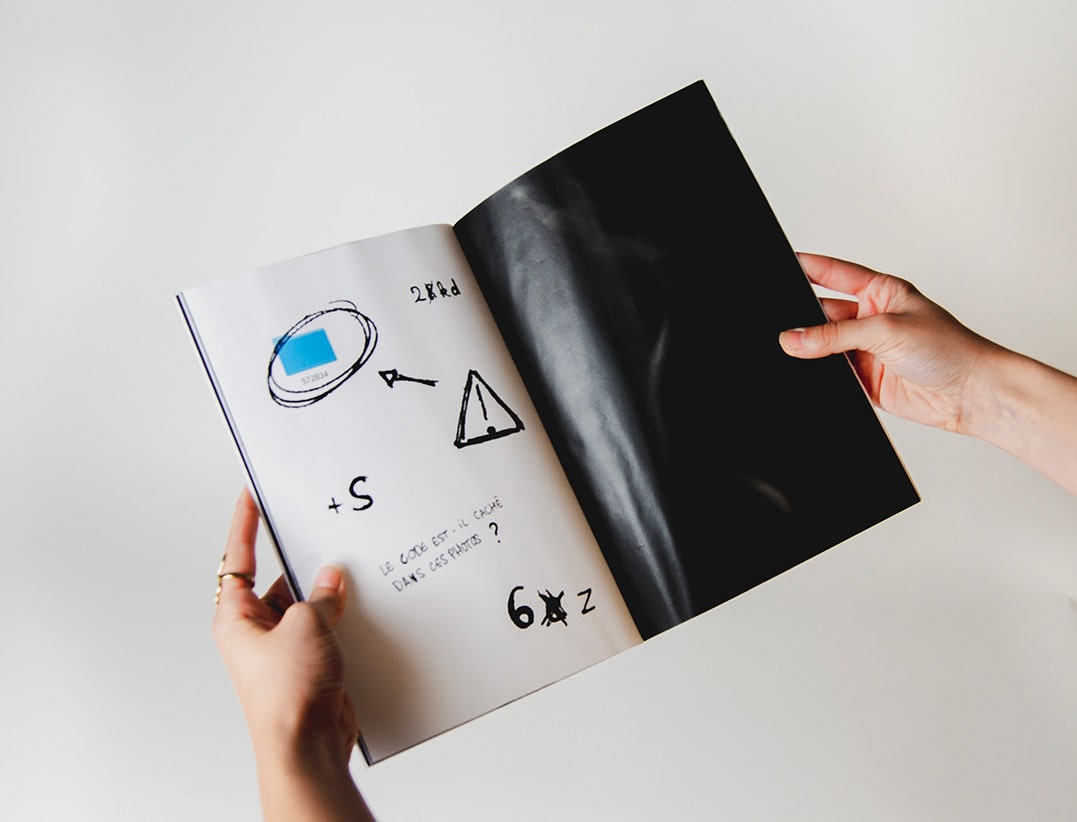 572834
+ S
LE CODE EST-IL CACHÉ
DANS CES PHOTOS ?
6 z